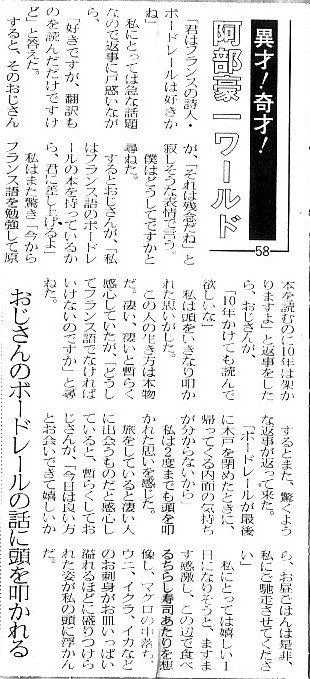 異才！奇才！
阿部豪一ワールド
58
おじさんのボードレールの話に頭を叩かれる
「君はフランスの詩人・
ボードレールは好きか
ね」
私にとっては急な話題
なので返事に戸惑いなが
ら、
「好きですが、翻訳も
のを読んだだけですけ
ど」と答えた。
すると、そのおじさん
が、「それは残念だね」と
寂しそうな表情で言う。
僕はどうしてですかと
尋ねた。
するとおじさんが、「私
はフランス語のボードレ
ールの本を持っているか
ら、君に差し上げるよ」
私はまた驚き「今から
フランス語を勉強して原
本を読むのに10年は架か
りますよ」と返事をした
ら、おじさんが、
「10年かけても読んで
欲しいな」
私は頭をいきなり叩か
れた思いがした。
この人の生き方は本物
だ。凄い、凄いと暫らく
感心していたが、「どうし
てフランス語でなければ
いけないのですか」と尋
ねた。
するとまた、驚くよう
な返事が返って来た。
「ボードレールが最後
に木戸を閉めたときに、
帰ってくる内面の気持ち
が分からないから
私は2度までも頭を叩
かれた思いを感じた。
旅をしていると凄い人
に出会うものだと感心し
ていると、暫らくしてお
じさんが、「今日は良い方
とお会いできて嬉しいか
ら、お昼ごはんは是非、
私にご馳走させてくださ
い」
私にとっては嬉しい1
日になりそうと、ますま
す感激し、この辺で食べ
るちらし寿司あたりを想
像し、マグロの中落ち、
ウニ、イクラ、イカなど
のお刺身がお皿いっぱい
溢れるほどに盛りつけら
れた姿が私の頭に浮かん
だ。